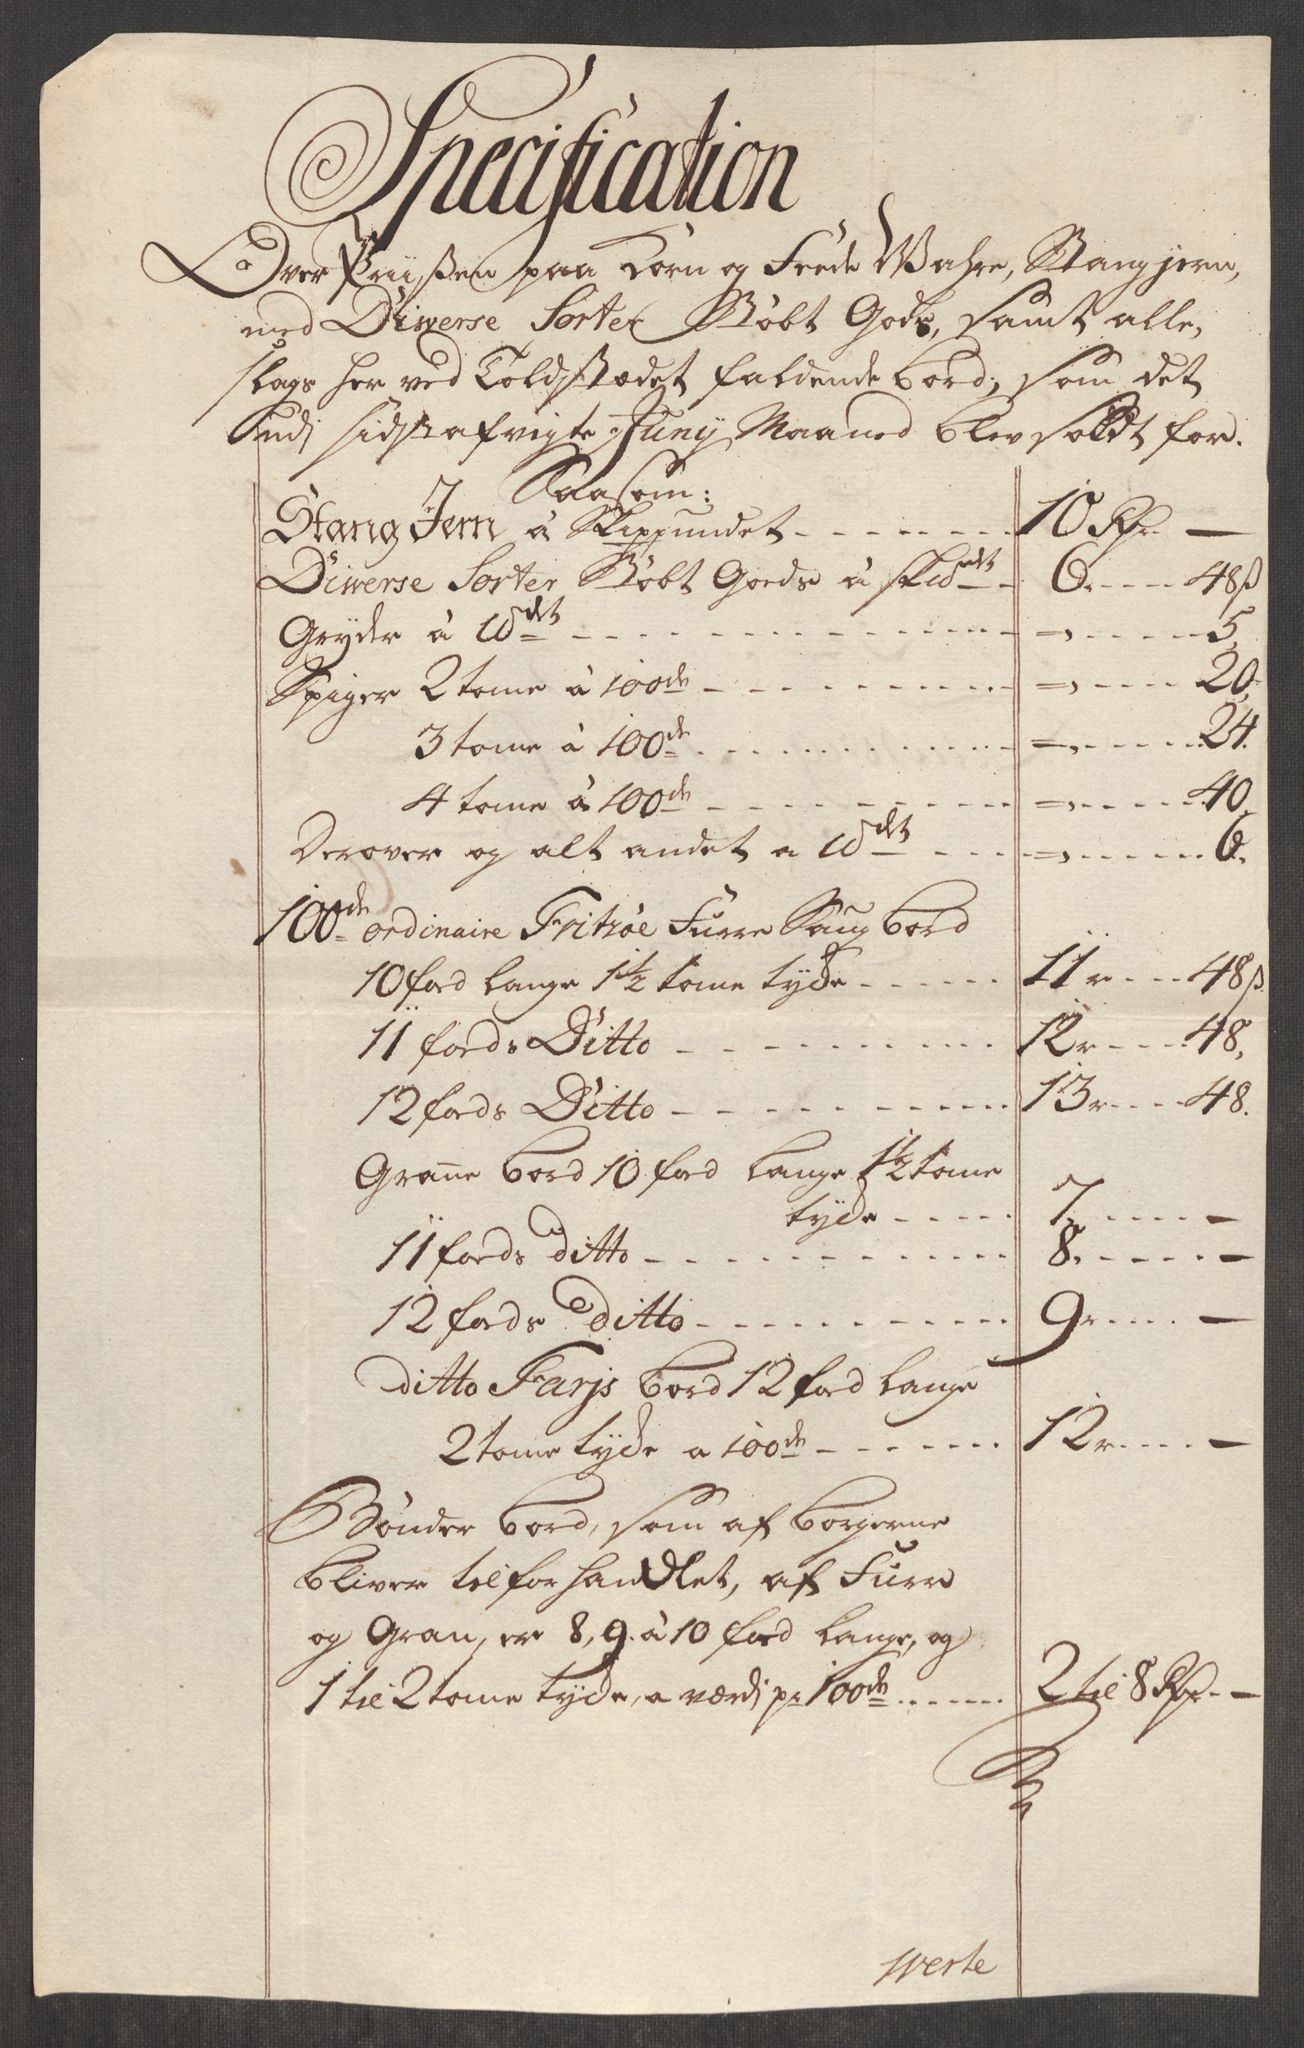 Specification
Over Priisßen paa Korn og Feede Wahre, Stangjern,
med Diverse Sorter Støbt Gods, samt alle,
slags her ved Toldstædet faldende bord, som det
udj sidst afvigte Juny Maaned blev soldt for.
Saasom:
Stang Jern à Skippundet - - - - - - - 10 Rdr —
Diverse Sorter Støbt Goeds à Sk℔det - 6. - - - - 48ß
Gryder à ℔det - - - - - - - - - - - = , - - - - - 5,
Spiger 2 tome à 100de - - - - - - - - = , - - - - 20,
3 tome à 100de - - - - - - - - - = , - - - - - 24.
4 tome à 100de - - - - - - - - - = , - - - - - 40.
Derover og alt andet a ℔det - - - - = , - - - - - 6.
100de ordinaire Fritzøe Furre Saug bord
10 foed lange 1½ tome tyde - - - - - - 11 r - - - 48ß.
11 foeds Ditto - - - - - - - - - - - 12 r - - - - 48,
12 foeds Ditto - - - - - - - - - - - 13 r - - - - 48.
Granne bord 10 foed lange 1½ tome
tyde - - - - - 7. - - - - - —
11 foeds ditto - - - - - - - - - - - 8. - - - - - —
12 foeds ditto - - - - - - - - - - 9 r - - - - —
ditto Farjs bord 12 foed lange
2 tome tyde a 100de - - - - - - - 12 r - - - - —
Bønder bord, som af borgerne
bliver tilforhandlet, af Furre
og Gran, er 8, 9. à 10 foed lange, og
1 til 2 tome tyde, a værdj pr 100de - - - - - - 2 til 8 Rdr. - —
verte